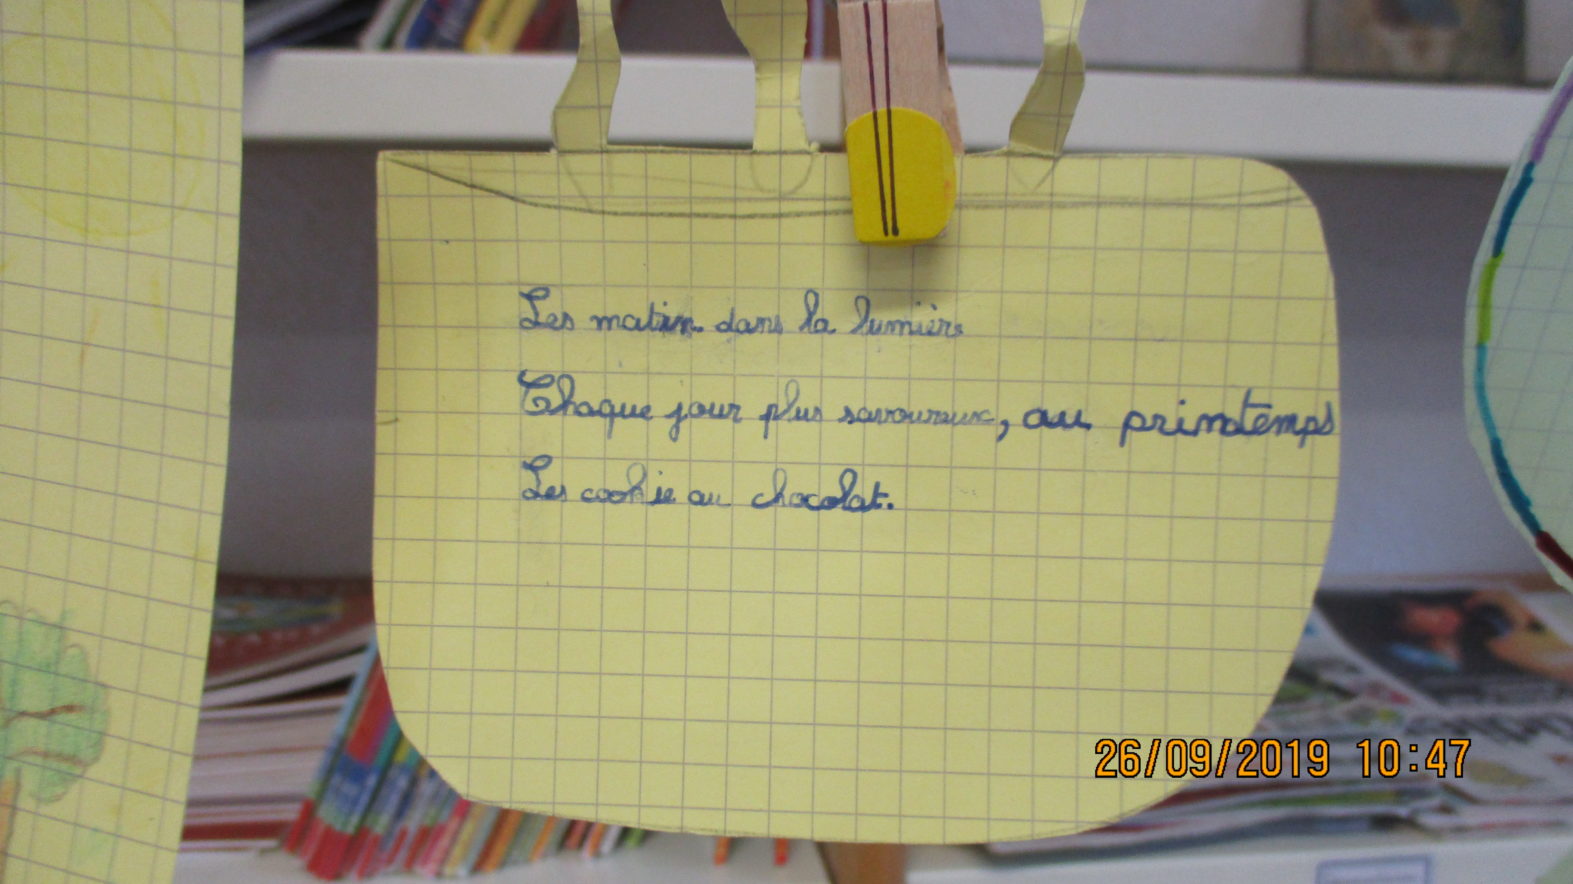 Les matin dans la lumière
Chaque jour plus savoureux, au printemps
Les cookie au chocolat.
26/09/2019 10:47